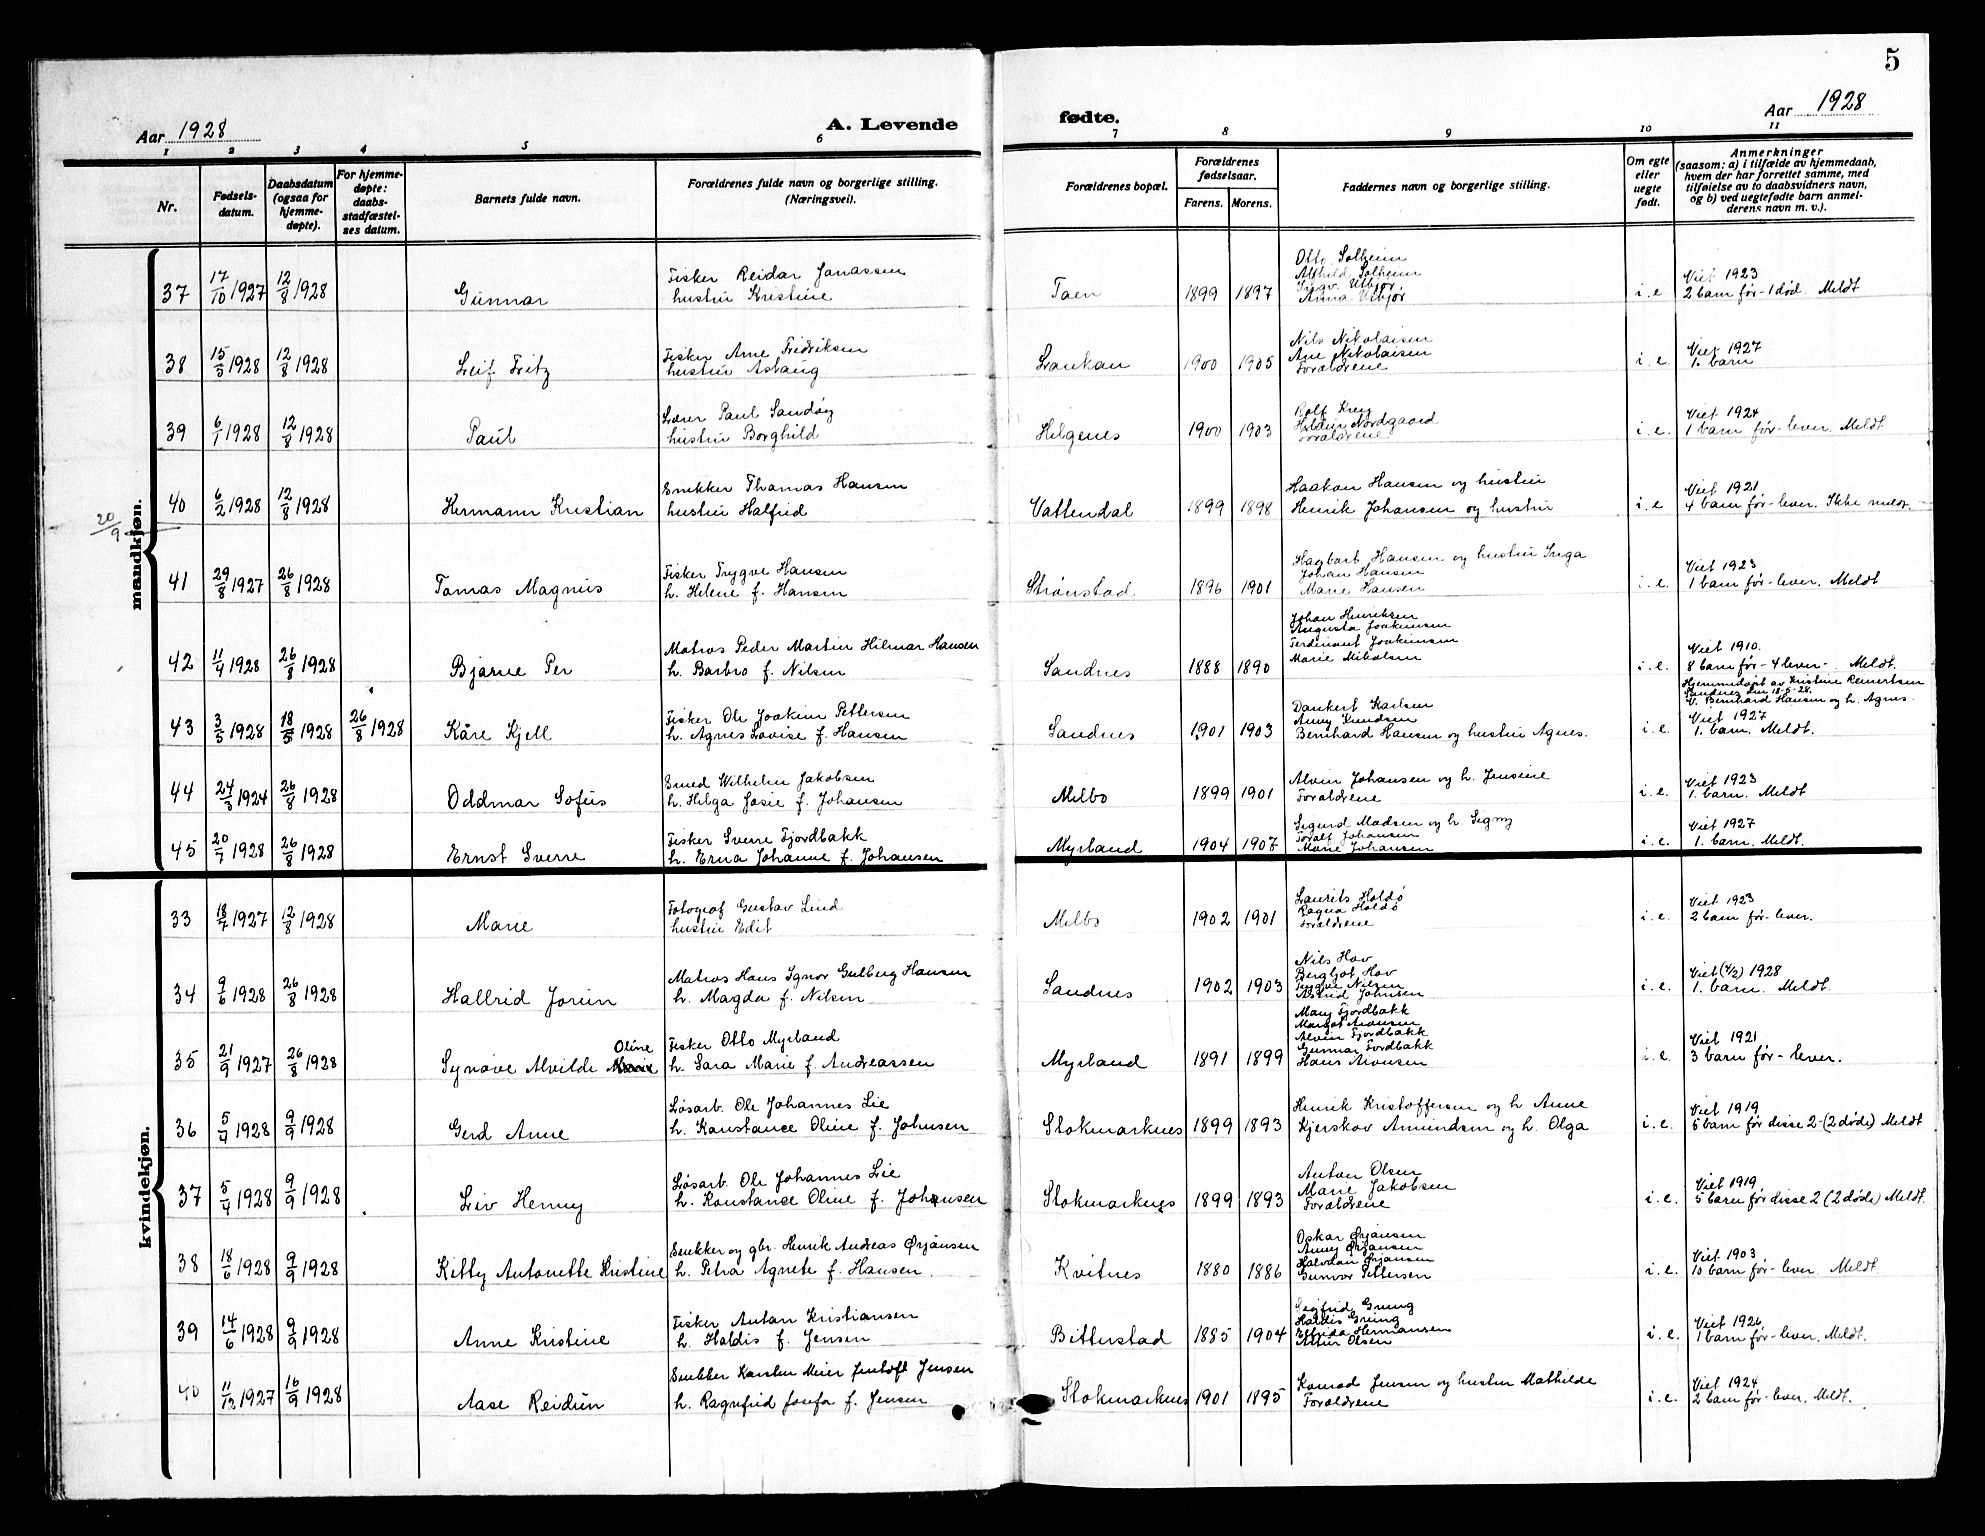 5
Aar 1928
A. Levende
fødte.
Aar 1928
1 2 3 4 5 6 7 8 9 10 11
Nr.
Fødsels-
datum.
Daabsdatum
(ogsaa for
hjemme-
døpte).
For hjemme-
døpte:
daabs-
stadfæstel-
ses datum.
Barnets fulde navn.
Forældrenes fulde navn og borgerlige stilling.
(Næringsvei).
Forældrenes bopæl.
Forældrenes
fødselsaar.
Farens. Morens.
Faddernes navn og borgerlige stilling.
Om egte
eller
uegte
født.
Anmerkninger
(saasom: a) i tilfælde av hjemmedaab,
hvem der har forrettet samme, med
tilføielse av to daabsvidners navn,
og b) ved uegtefødte barn anmel-
derens navn m. v.).
mandkjøn.
20/9
37 17/10 1927 12/8 1928 Gunnar
Fisker Reidar Jonassen
hustru Kristine
Taen 1899 1897
Otto Solheim
Alfhild Solheim
Ingv. Utbjør
Anna Utbjør
i.e
Viet 1923
2 barn før - 1 død. Meldt
38 15/5 1928 12/8 1928 Leif Fritz
Fisker Arne Fredriksen
hustru Aslaug
Lankan 1900 1905
Nils Nikolaisen
Ane Nikolaisen
Forældrene
i.e.
Viet 1927
1. barn
39 6/1 1928 12/8 1928 Paul
Lærer Paul Sandøy
hustru Borghild
Helgenes 1900 1903
Rolf Krey
Nordgaard
Forældrene
i.e.
Viet 1924
1 barn før - lever. Meldt
40 6/2 1928 12/8 1928 Hermann Kristian
Snekker Thomas Hansen
hustru Halfrid
Vattendal 1899 1898
Haakon Hansen og hustru
Henrik Johansen og hustru
i.e
Viet 1921
4 barn før - lever. Ikke meldt.
41 29/8 1927 26/8 1928 Tomas Magnus
Fisker Trygve Hansen
h. Helene f. Hansen
Strønstad. 1896 1901
Hagbart Hansen og hustru Inga
Johan Hansen
Marie Hansen
i.e.
Viet 1923
1 barn før - lever. Meldt
42 11/4 1928 26/8 1928 Bjarne Per
Matros Peder Martin Hilmar Hansen
h. Barbro f. Nilsen
Sandnes 1888 1890
Johan Henriksen
Augusta Joakimsen
Ferdinant Joakimsen
Marie Mikalsen
i.e.
Viet 1910.
8 barn før - 4 lever - Meldt.
43 3/5 1928 18/5 1928 26/8 1928 Kåre Kjell
Fisker Ole Joakim Pettersen
h. Agnes Lovise f. Hansen
Sandnes 1901 1903
Dankert Karlsen
Anny Knudsen
Bernhard Hansen og hustru Agnes.
i.e.
Hjemmedøpt av Kristine Reinertsen
Sandnes den 18-5-28.
V. Bernhard Hansen og h. Agnes.
Viet 1927
1. barn. Meldt.
44 24/3 1924 26/8 1928 Oddmar Sofus
Smed Wilhelm Jakobsen
h. Helga Josie f. Johansen
Melbo 1899 1901
Alvin Johansen og h. Jensine
Forældrene
i.e.
Viet 1923
1. barn. Meldt
45 20/7 1928 26/8 1928 Ernst Sverre
Fisker Sverre Fjordbakk
h. Erna Johanne f. Johansen
Myrland 1904 1907
Sigurd Madsen og h Signy
Toralf Johansen
Marie Johansen
i.e.
Viet 1927
1. barn. Meldt.
kvindekjøn.
33 18/7 1927 12/8 1928 Marie
Fotograf Gustav Lind
hustru Edit
Melbo 1902 1901
Laurits Holdø
Ragna Holdø
Forældrene
i.e.
Viet 1923
2 barn før - lever.
34 9/6 1928 26/8 1928 Hallrid Jorun
Matros Hans Ignor Gulberg Hansen
h. Magda f. Nilsen
Sandnes 1902 1903
Nils Hov
Bergljot Hov
Trygve Nilsen
Astrid Johnsen
i.e.
Viet (4/2) 1928
1. barn. Meldt.
35 21/9 1927 26/8 1928 Synøve Alvilde Oline
Fisker Otto Myrland
h. Sara Marie f. Andreassen
Myrland 1891 1899
Mary Fjordbakk
Margot Aronsen
Alvin Fjordbakk
Gunnar Fjordbakk
Hans Aronsen
i.e.
Viet 1921
3 barn før - lever.
36 5/4 1928 9/9 1928 Gerd Anne
Løsarb. Ole Johannes Lie
h. Konstance Oline f. Johnsen
Stokmarknes 1899 1893
Henrik Kristoffersen og h Anne
Kjerskov Amundsen og h. Olga
i.e.
Viet 1919
5 barn før disse 2 - (2 døde) Meldt
37 5/4 1928 9/9 1928 Liv Henny
Løsarb. Ole Johannes Lie
h. Konstance Oline f. Johnsen
Stokmarknes 1899 1893
Anton Olsen
Marie Jakobsen
Forældrene
i.e.
Viet 1919.
5 barn før disse 2 (2 døde) Meldt.
38 18/6 1928 9/9 1928 Kitty Antonette Kristine
Snekker og gbr. Henrik Andreas Ørjansen
h. Petra Agnete f. Hansen.
Kvitnes 1880 1886
Oskar Ørjansen
Anny Ørjansen
Halvdan Ørjansen
Gunvor Pettersen
i.e.
Viet. 1903
10 barn før - lever. Meldt.
39 14/6 1928 9/9 1928 Anne Kristine
Fisker Anton Kristiansen
h. Haldis f. Jensen
Bitterstad 1885 1904
Sigfrid Greing
Haldis Greing
Elfrida Hermansen
Artur Olsen
i.e.
Viet 1926
1 barn før - lever. Meldt.
40 11/12 1927 16/9 1928 Aase Reidun
Snekker Karsten Meier Jentoft Jensen
h. Ragnfrid Josefa f. Jensen
Stokmarknes 1901 1895
Konrad Jensen og hustru Mathilde
Forældrene
i.e.
Viet 1924
2 barn før - lever. Meldt.